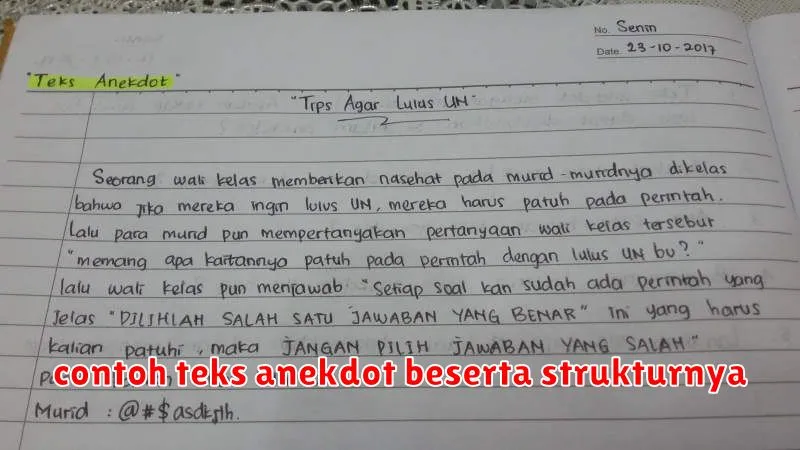 No. Senin
Date. 23-10-2017
"Teks Anekdot"
"Tips Agar Lulus UN"
Seorang wali kelas memberikan nasehat pada murid-muridnya dikelas
bahwa jika mereka ingin lulus UN, mereka harus patuh pada perintah.
Lalu para murid pun mempertanyakan pertanyaan wali kelas tersebut
"memang apa kaitannya patuh pada perintah dengan lulus UN bu?"
lalu wali kelas pun menjawab "Setiap soal kan sudah ada perintah yang
Jelas "PILIHLAH SALAH SATU JAWABAN YANG BENAR" ini yang harus
kalian patuhi, maka JANGAN PILIH JAWABAN YANG SALAH"
contoh teks anekdot beserta strukturnya
Murid : @#$asdkjth.